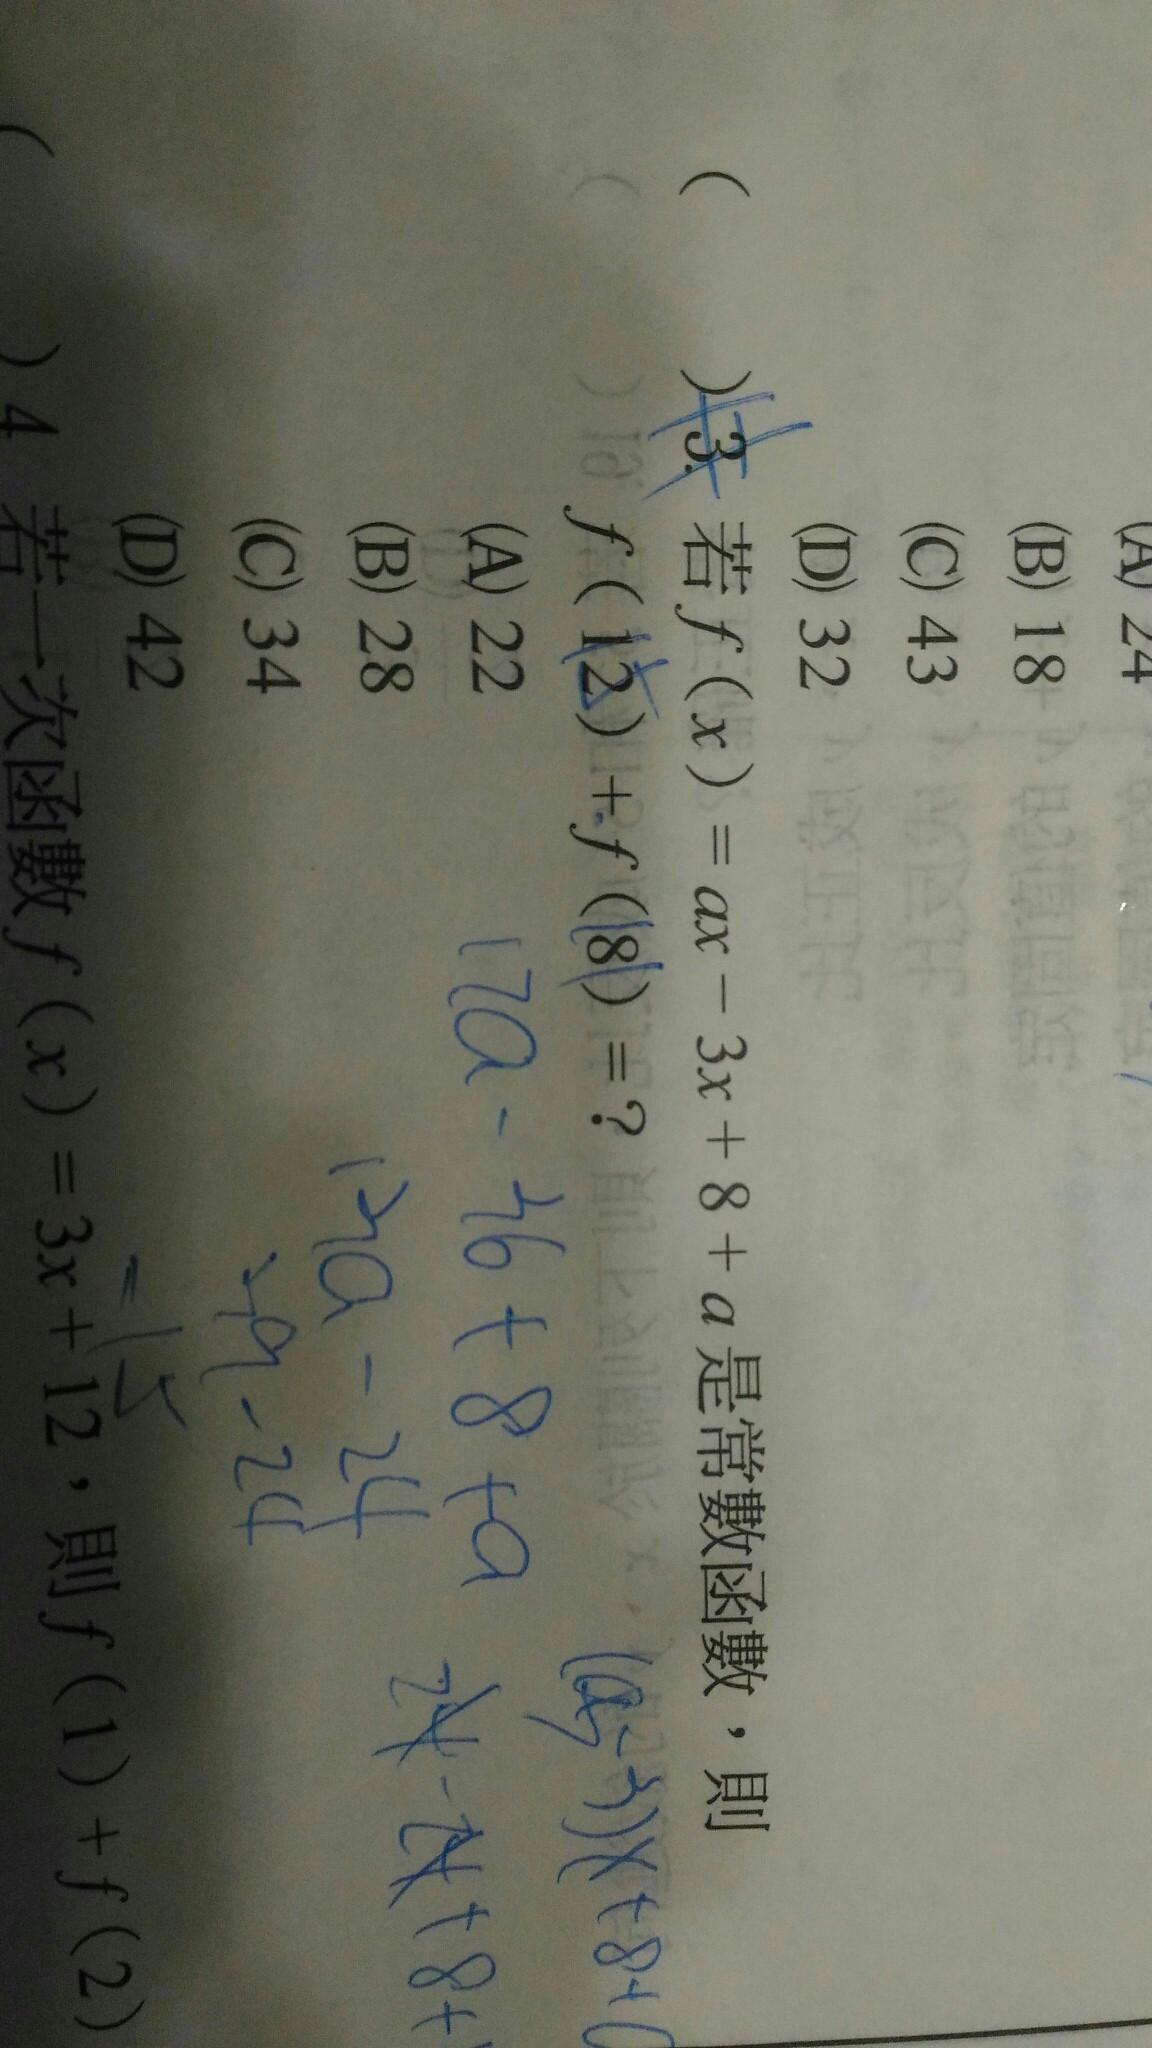 (A) 24
(B) 18
(C) 43
(D) 32
( )3. 若 f(x)=ax-3x+8+a 是常數函數，則
f(12)+f(8)=?
(A) 22
(B) 28
(C) 34
(D) 42
17a - 36 + 8 + a
13a - 24
- 24
= 15
(a-3)x+8+a
24 - 24 + 8 +
( )4 若一次函數 f(x)=3x+12，則 f(1)+f(2)